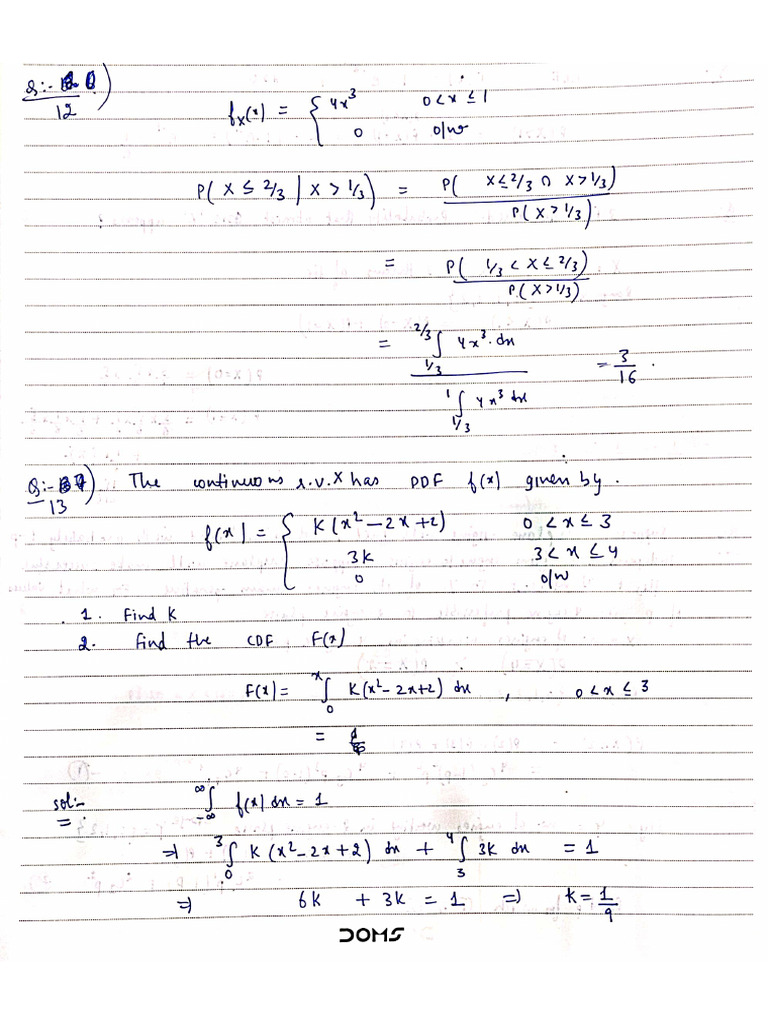 Q:-
12)
fₓ(x) = { 4x³ 0 < x ≤ 1
0 o/w
P( X ≤ 2/3 | X > 1/3) = P( X ≤ 2/3 ∩ X > 1/3) / P( X > 1/3)
= P( 1/3 < X ≤ 2/3) / P( X > 1/3)
= ∫_{1/3}^{2/3} 4x³·dx / ∫_{1/3}^{1} 4x³ dx = 3/16 .
Q:- 13) The continuous r.v. X has PDF f(x) given by.
f(x) = { K(x² - 2x + 2) 0 < x ≤ 3
3K 3 < x ≤ 4
0 o/w
1. Find K
2. Find the CDF F(x)
F(x) = ∫_{0}^{x} K(x² - 2x + 2) dx , 0 < x ≤ 3
=
sol:- ∫_{-∞}^{∞} f(x) dx = 1
=
⇒ ∫_{0}^{3} K(x² - 2x + 2) dx + ∫_{3}^{4} 3K dx = 1
⇒ 6K + 3K = 1 ⇒ K = 1/9
DOMS